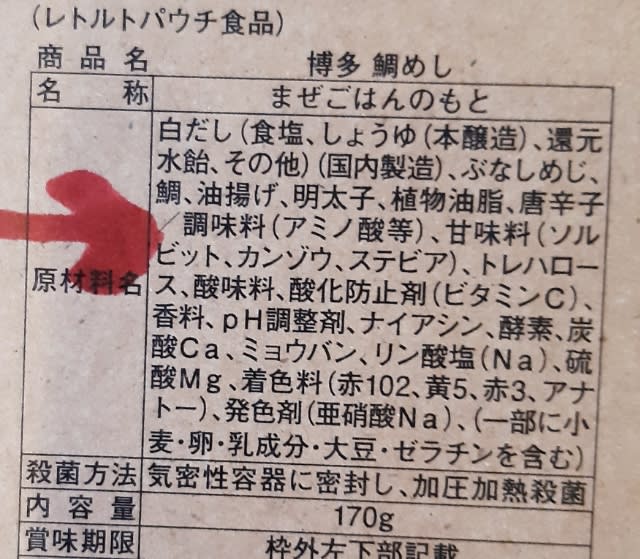 (レトルトパウチ食品)
商品名 博多 鯛めし
名称 まぜごはんのもと
原材料名
白だし(食塩、しょうゆ(本醸造)、還元
水飴、その他)(国内製造)、ぶなしめじ、
鯛、油揚げ、明太子、植物油脂、唐辛子
/調味料(アミノ酸等)、甘味料(ソル
ビット、カンゾウ、ステビア)、トレハロー
ス、酸味料、酸化防止剤(ビタミンC)、
香料、pH調整剤、ナイアシン、酵素、炭
酸Ca、ミョウバン、リン酸塩(Na)、硫
酸Mg、着色料(赤102、黄5、赤3、アナ
トー)、発色剤(亜硝酸Na)、(一部に小
麦・卵・乳成分・大豆・ゼラチンを含む)
殺菌方法 気密性容器に密封し、加圧加熱殺菌
内容量 170g
賞味期限 枠外左下部記載